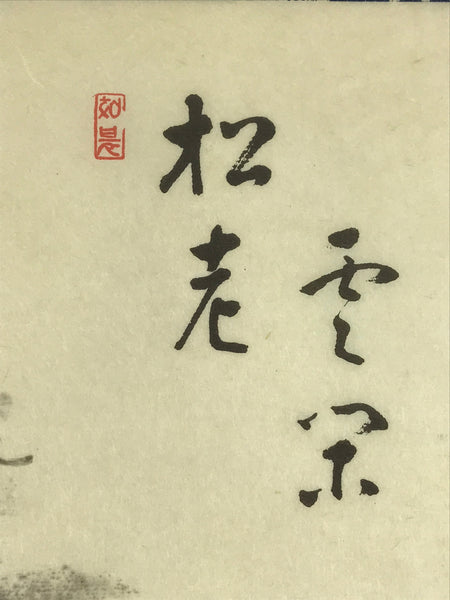 如是
松老
雲閑